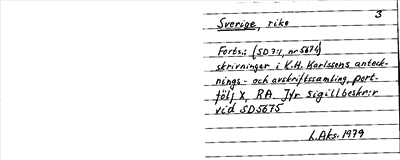 3
Sverige, rike
Forts.: (SD 7:1, nr 5674)
skrivningar i K.H. Karlssons anteck-
nings- och avskriftssamling, port-
följ X, RA. Jfr sigillbeskr:r
vid SD5675
L.Aks. 1979